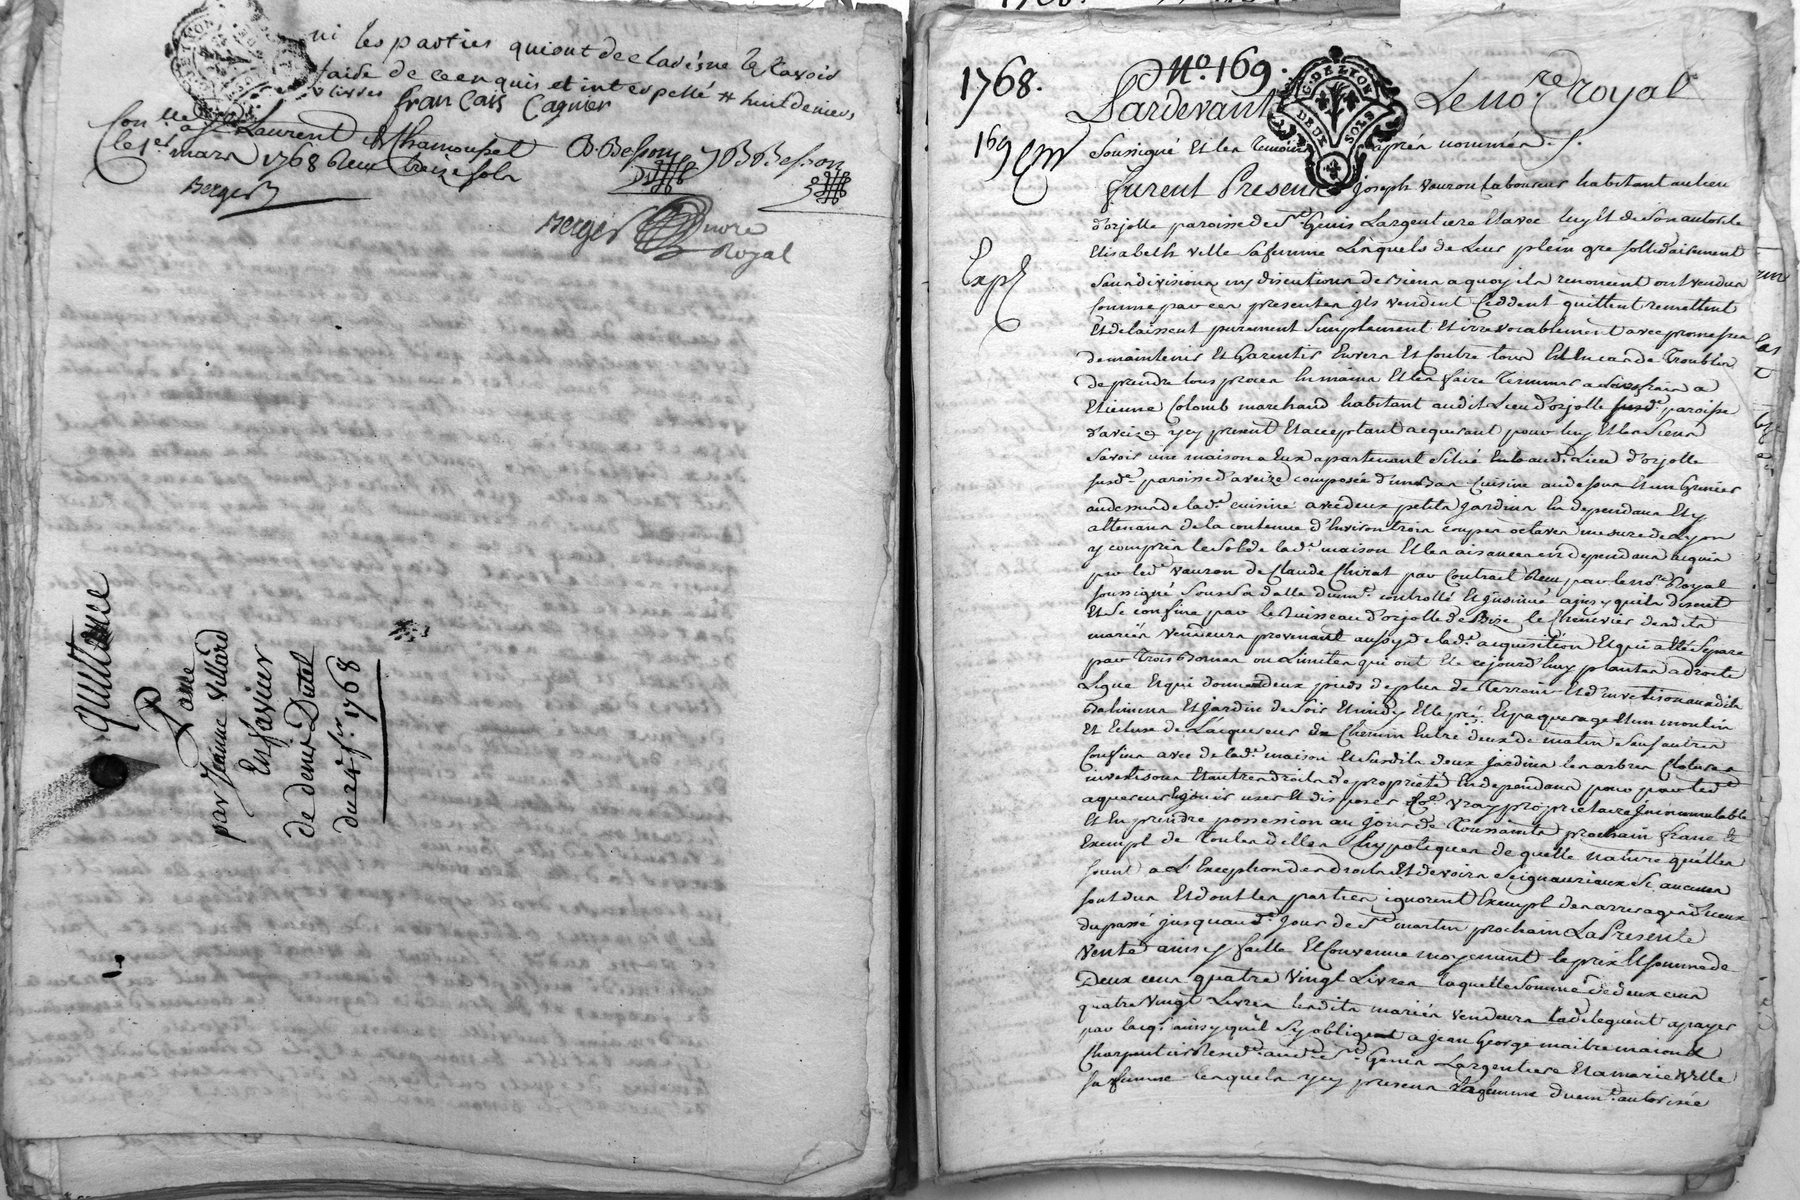 ni les parties qui ont declaré ne le savoir
faire de ce enquis et interpellé # huit deniers
francois Cagnier
a St Laurent de Chamousset
le 1er mars 1768 Reçu treize sols
B. Besson J B Besson
Berger
Berger Nore
Royal
quittance
par Jeanne Villard
En faveur
de denis Dutel
du 24e fer 1768
1768. No. 169.
G. DE LYON
DEUX SOLS
Pardevant Le no.re royal
169
Soussigné Et les Temoins aprés nommés
furent Presens Joseph vauron Laboureur habitant au lieu
d'orjolle paroisse de St Genis Largentiere Et avec luy Et de Son autorité
Elisabeth ville Sa femme Lesquels de Leur plein gre sollidairement
Exp
Sans divisions ny discutions de Biens a quoy ils renoncent ont vendus
comme par ces presentes ils vendent Ceddent quittent remettent
Et delaissent purement Simplement Et irrevocablement avec promesses
de maintenir Et Garentir Envers Et Contre tous Et En cas de Troubles
de prendre tous proces En mains Et les faire Terminer a leurs frais a
Etienne Colomb marchand habitant audit Lieu d'orjolle paroisse
d'aveize y cy present Et acceptant acquerant pour luy Et les Siens
Savoir une maison a Eux apartenant Situé audt Lieu d'orjolle
susd.e paroisse d'aveize composée d'un bas Cuisine au dessus Et un Grenier
au dessus de lad.e cuisine avec deux petits Jardins En dependans Et y
attenans de la contenue d'Environ trois coupes octaves mesure de Lyon
y compris le Sol de lad.e maison Et les aisances en dependans acquis
par led.t vauron de Claude Chirat par Contract Reçu par le no.re Royal
soussigné Sous Sa datte duem.t controllé Et insinué ainsy qu'ils disent
Et Se confine par le Ruisseau d'orjolle de Bize le Chenevier desdits
mariés vendeurs provenant aussy de lad.e acquisition Et qui a Eté Separé
par Trois Bornes ou Limites qui ont Eté cejourd'huy plantés a droite
Ligne Et qui donnent deux pieds de plus de Terrein
Batimens Et Jardin de Soir Et midy Et le pré Et paquerage Et un moulin
Et Ecluse de L'acquereur Chemin Entre deux de matin Sauf autres
Confins avec de lad.e maison Et Susdits deux Jardins les arbres Clotures
investisons Et autres droits de proprieté En dependans pour par led.t
aquereur En jouir user Et disposer vray proprietaire Incommutable
Et En prendre possession au jour de Toussaints prochain franc Et
Exempt de Toutes dettes hypoteques de quelle nature quelles
soient a L'Exception des droits Et devoirs Seigneuriaux Si aucuns
sont dus Et dont les parties ignorent Exempt des arrerages d'iceux
du passé jusquaud.t jour de St martin prochain La Presente
vente ainsy faitte Et Convenue moyenant le prix Et Somme de
Deux cens quatre vingt Livres laquelle Somme de deux cens
quatre vingt Livres lesdits mariés vendeurs deleguent a payer
par lacq.r ainsy qu'il s'y oblige a Jean George maitre
Charpentier audt St Genis Largentiere Et a marie Ville
sa femme Lesquels y cy presens La femme duem.t autorisée